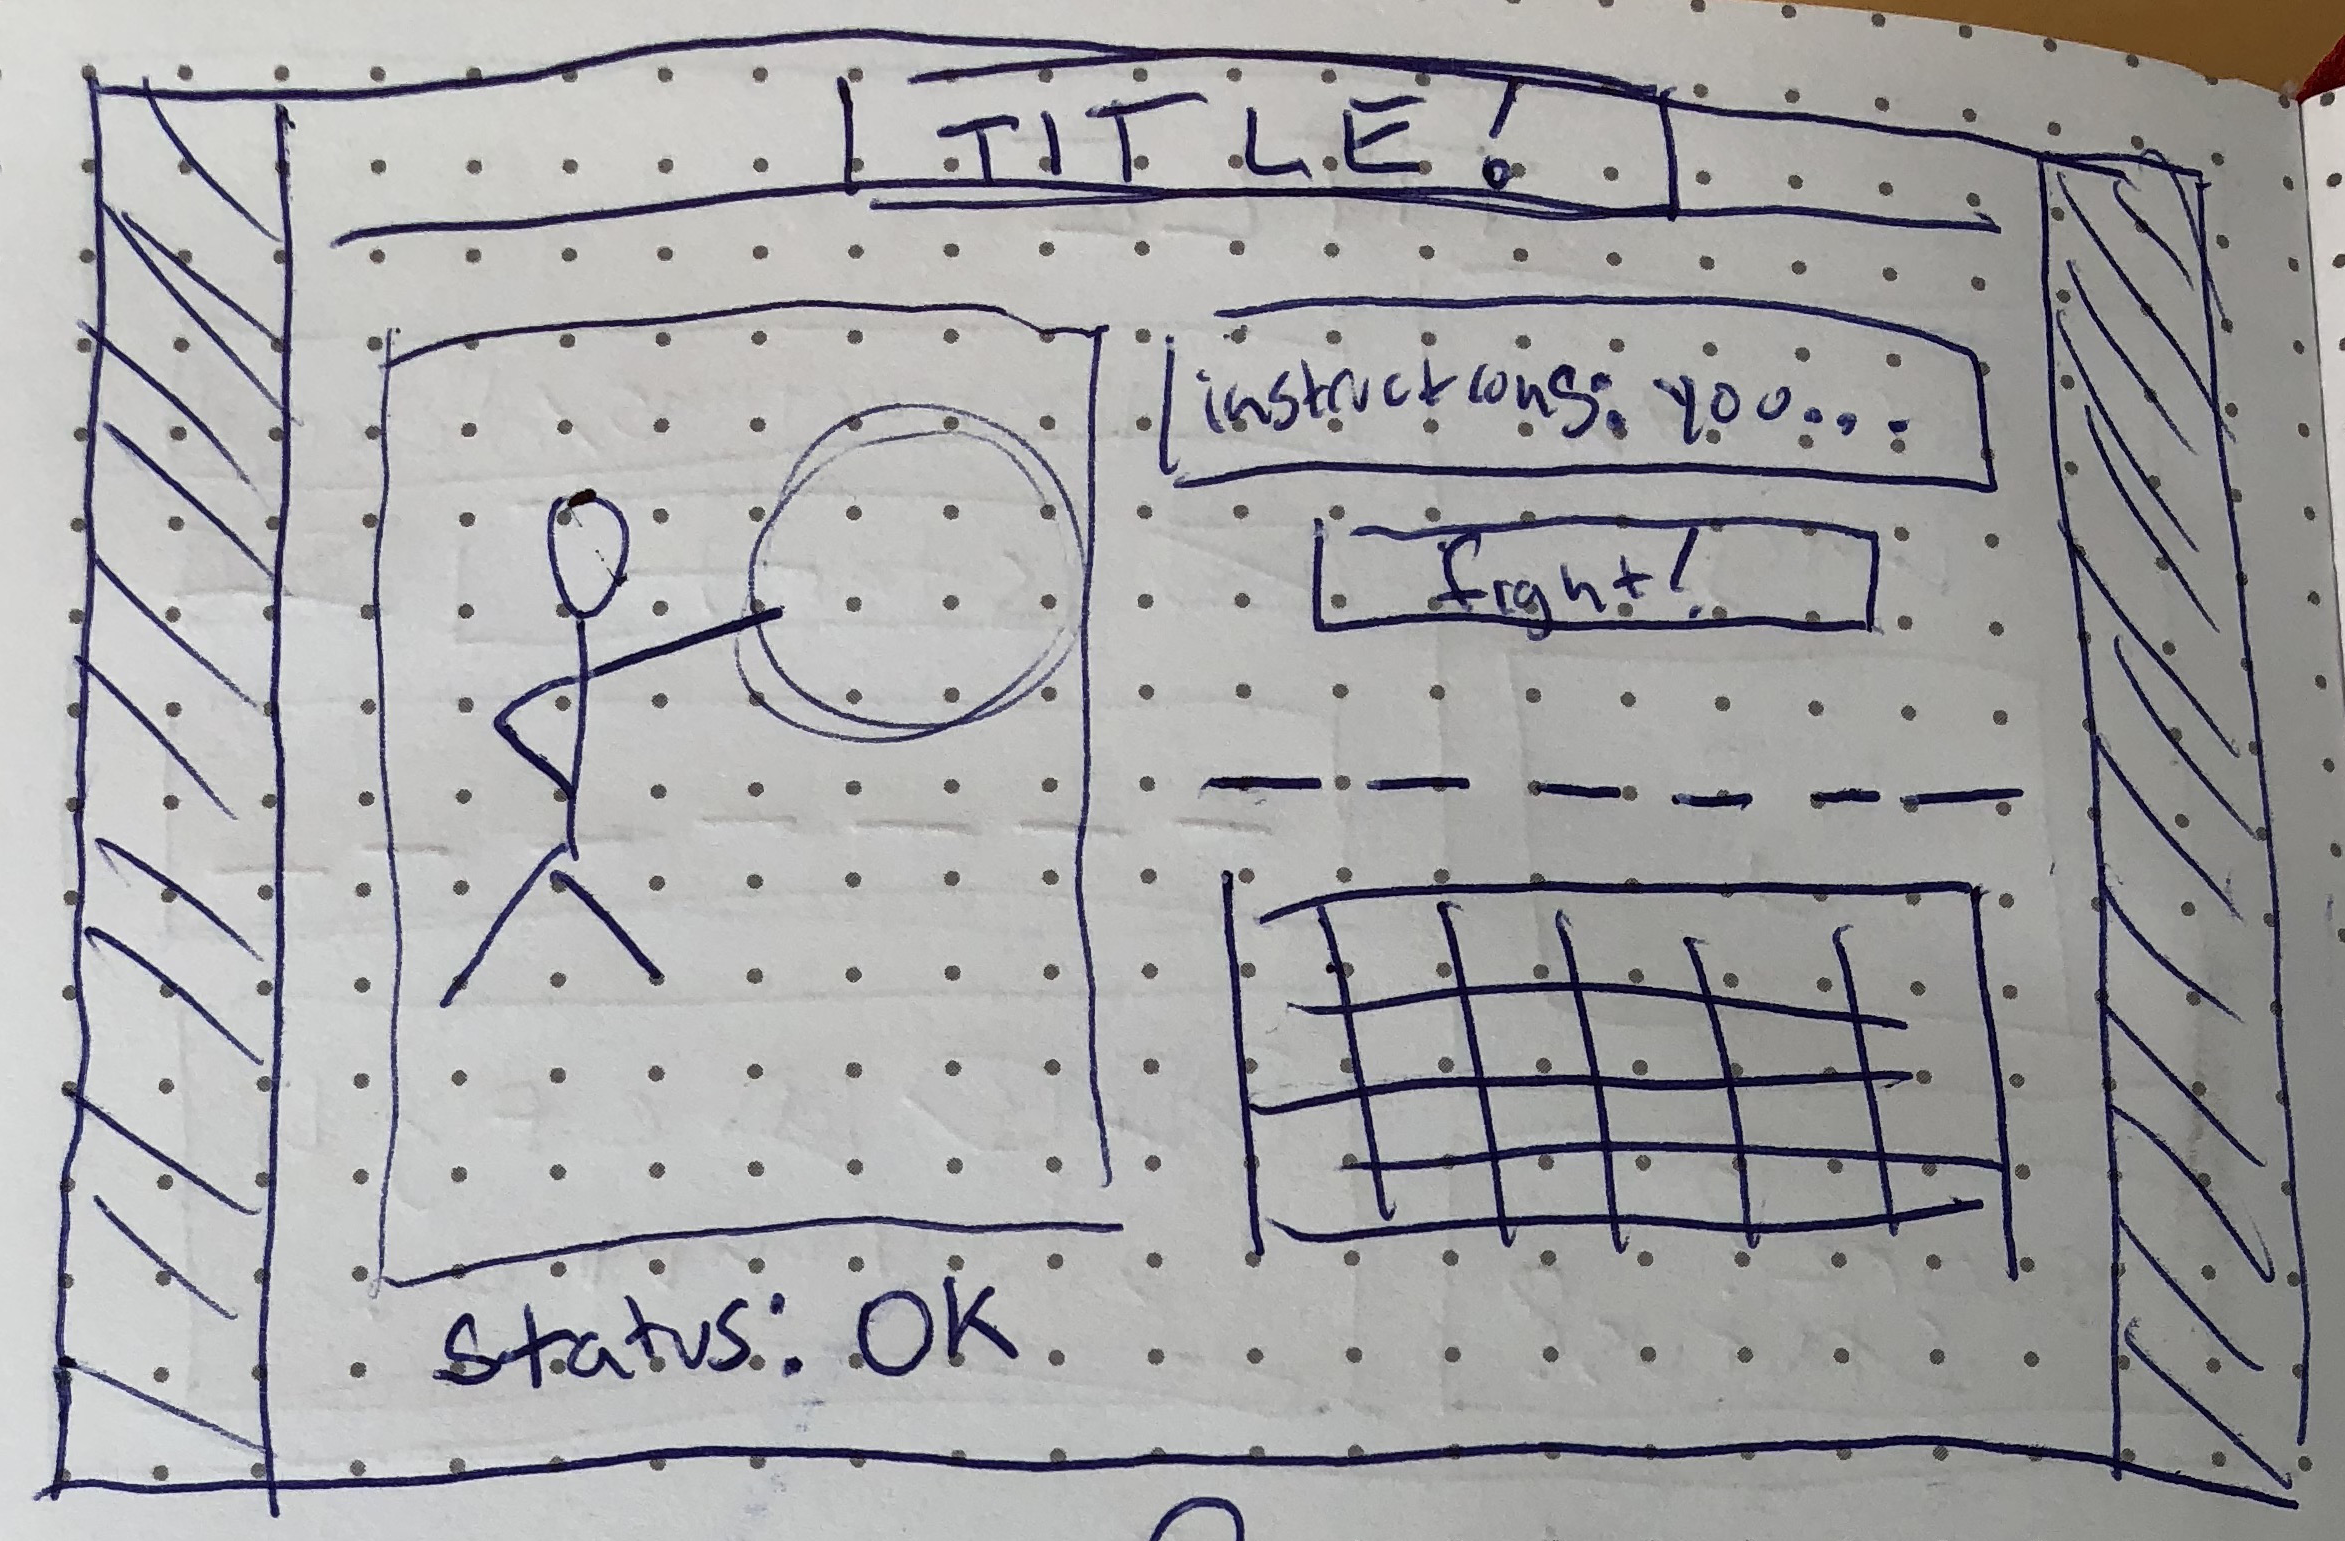 TITLE!
instructions: you...
fight!
status: OK